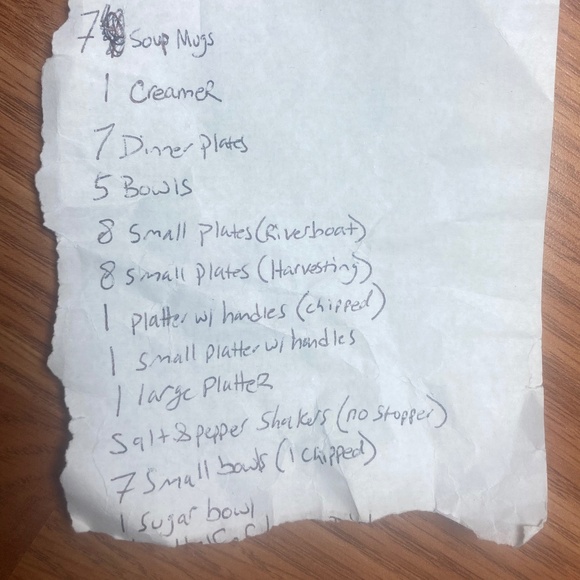 7 Soup Mugs
1 Creamer
7 Dinner Plates
5 Bowls
8 Small Plates (Riverboat)
8 Small Plates (Harvesting)
1 Platter w/ handles (chipped)
1 Small Platter w/ handles
1 large Platter
Salt & pepper Shakers (no stopper)
7 Small bowls (1 chipped)
1 Sugar bowl